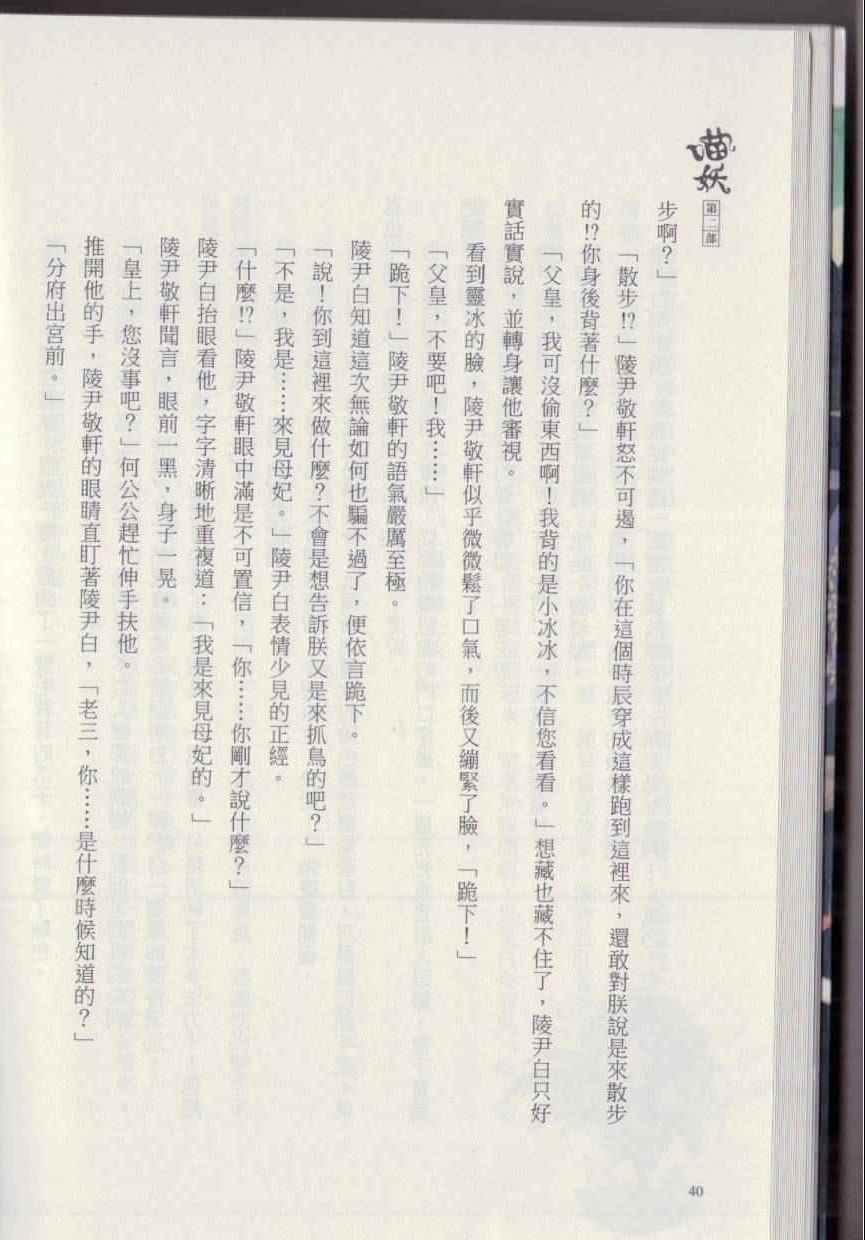 喵妖
第二部
步啊？」
「散步!?」陵尹敬軒怒不可遏，「你在這個時辰穿成這樣跑到這裡來，還敢對朕說是來散步
的!?你身後背著什麼？」
「父皇，我可沒偷東西啊！我背的是小冰冰，不信您看看。」想藏也藏不住了，陵尹白只好
實話實說，並轉身讓他審視。
看到靈冰的臉，陵尹敬軒似乎微微鬆了口氣，而後又繃緊了臉，「跪下！」
「父皇，不要吧！我……」
「跪下！」陵尹敬軒的語氣嚴厲至極。
陵尹白知道這次無論如何也騙不過了，便依言跪下。
「說！你到這裡來做什麼？不會是想告訴朕又是來抓鳥的吧？」
「不是，我是……來見母妃。」陵尹白表情少見的正經。
「什麼!?」陵尹敬軒眼中滿是不可置信，「你……你剛才說什麼？」
陵尹白抬眼看他，字字清晰地重複道：「我是來見母妃的。」
陵尹敬軒聞言，眼前一黑，身子一晃。
「皇上，您沒事吧？」何公公趕忙伸手扶他。
推開他的手，陵尹敬軒的眼睛直盯著陵尹白，「老三，你……是什麼時候知道的？」
「分府出宮前。」
40